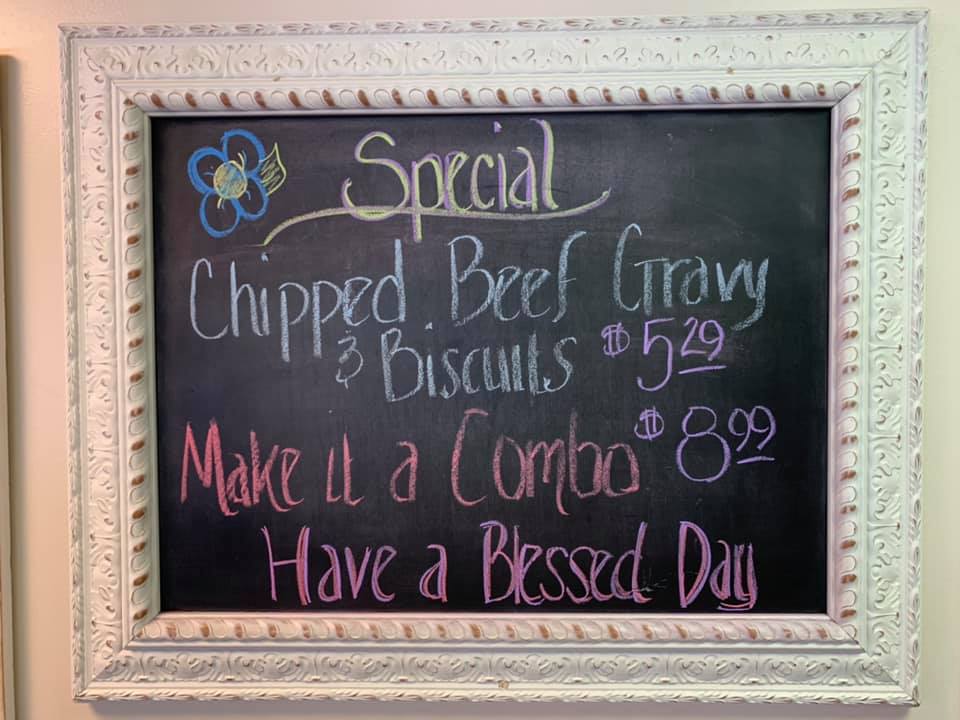 Special
Chipped Beef Gravy
& Biscuits $5.29
Make it a Combo $8.99
Have a Blessed Day